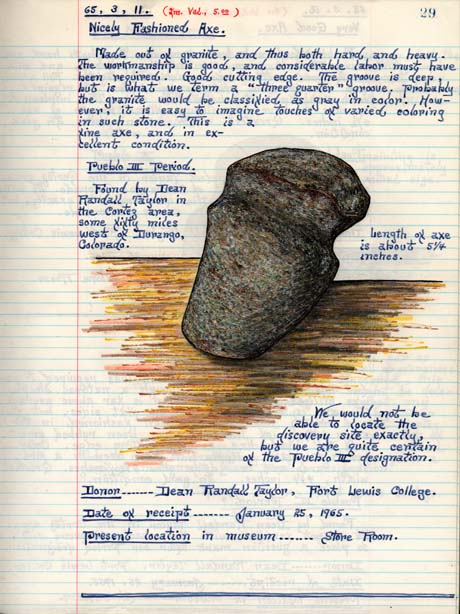 65, 3, 11. (Ins. Val., 5.00)
29
Nicely Fashioned Axe.
Made out of granite, and thus both hard, and heavy.
The workmanship is good, and considerable labor must have
been required. Good cutting edge. The groove is deep
but is what we term a "three quarter" groove. Probably
the granite would be classified, as gray in color. How-
ever, it is easy to imagine touches of varied coloring
in such stone. This is a
fine axe, and in ex-
cellent condition.
Pueblo III Period.
Found by Dean
Randall Taylor in
the Cortez area,
some fifty miles
west of Durango,
Colorado.
Length of axe
is about 5 1/4
inches.
We would not be
able to locate the
discovery site, exactly,
but we are quite certain
of the Pueblo III designation.
Donor------- Dean Randall Taylor, Fort Lewis College.
Date of receipt------- January 25, 1965.
Present location in museum------- Store Room.